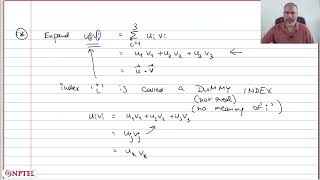 * Expand u_i v_i = 3 Σ i=1 u_i v_i
= u_1 v_1 + u_2 v_2 + u_3 v_3
= u⃗ . v⃗
index 'i' is called a DUMMY INDEX
(not fixed)
(no meaning of 'i')
u_i v_i = u_1 v_1 + u_2 v_2 + u_3 v_3
= u_j v_j
= u_k v_k
NPTEL